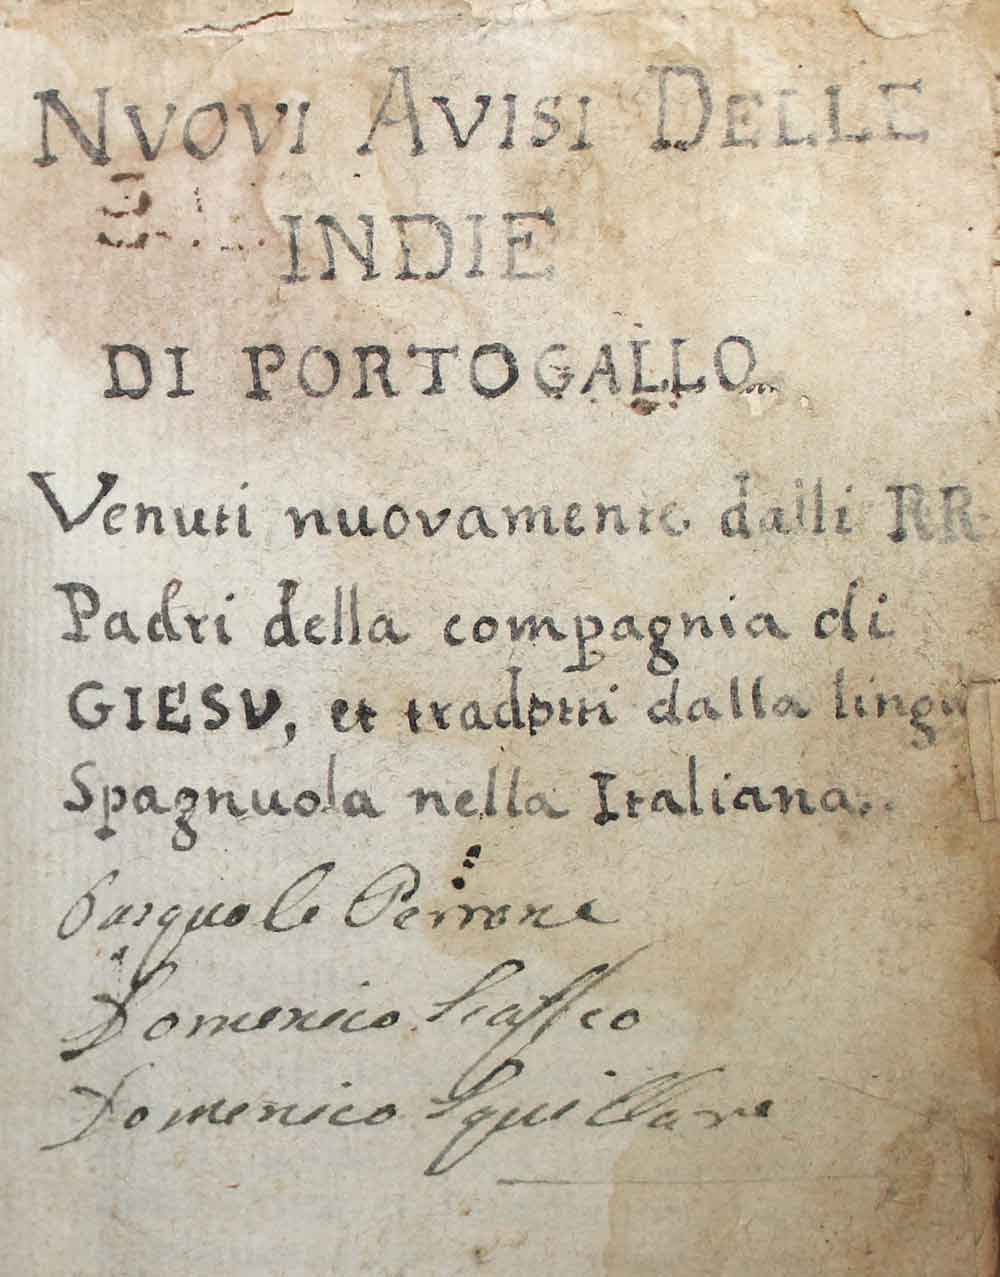 NVOVI AVISI DELLE
INDIE
DI PORTOGALLO
Venuti nuovamente dalli RR.
Padri della compagnia di
GIESV, et tradotti dalla lingua
Spagnuola nella Italiana.
Pasquale Perrone
Domenico
Domenico Squillare